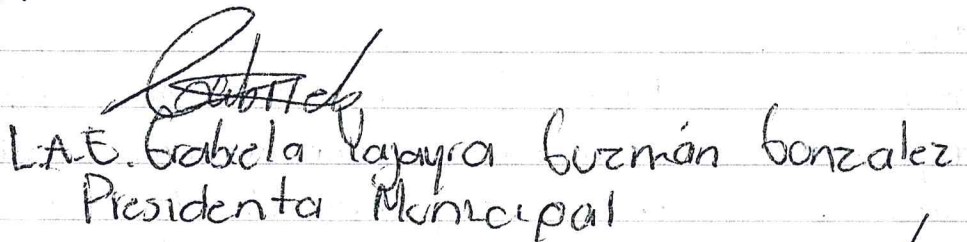 Gabriela
L.A.E. Grabiela Yajayra Guzmán Gonzalez
Presidenta Municipal